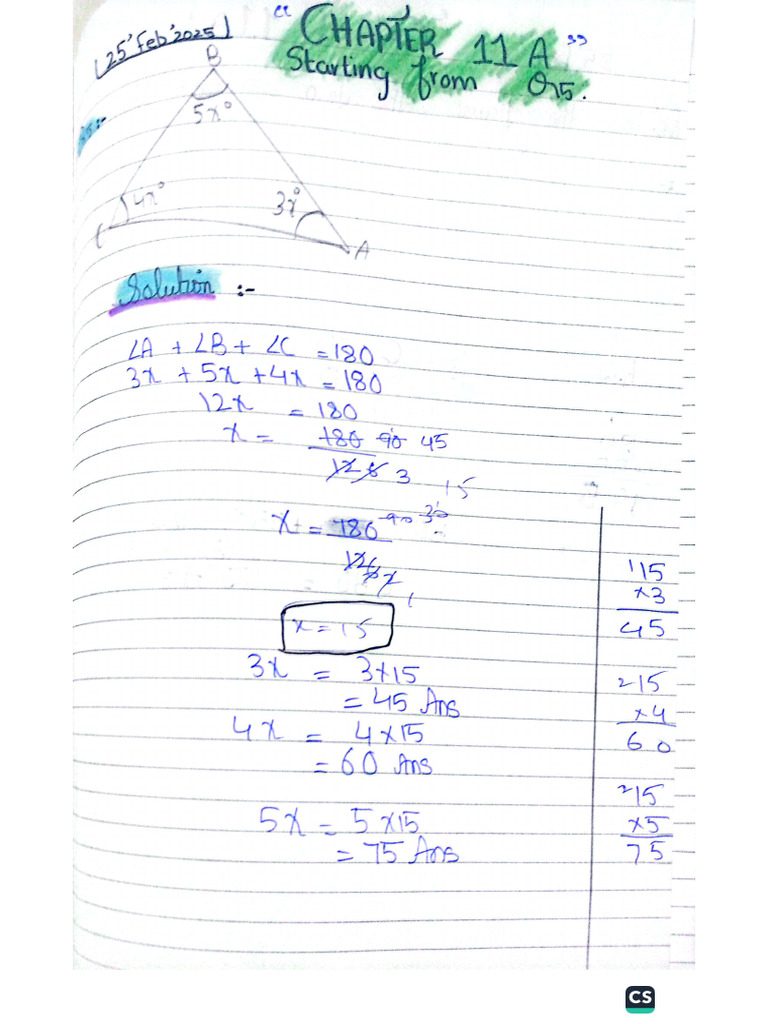 (25'Feb'2025)
" CHAPTER 11 A "
Starting from Q5.
B
5x°
Q5:-
4x°
3x°
C
A
Solution :-
∠A + ∠B + ∠C = 180
3x + 5x + 4x = 180
12x = 180
x = 180 90 45
12 6 3
15
x = 180 90 30
12 6 2
1
x = 15
3x = 3×15
= 45 Ans
4x = 4×15
= 60 Ans
5x = 5×15
= 75 Ans
115
×3
45
215
×4
60
215
×5
75
CS